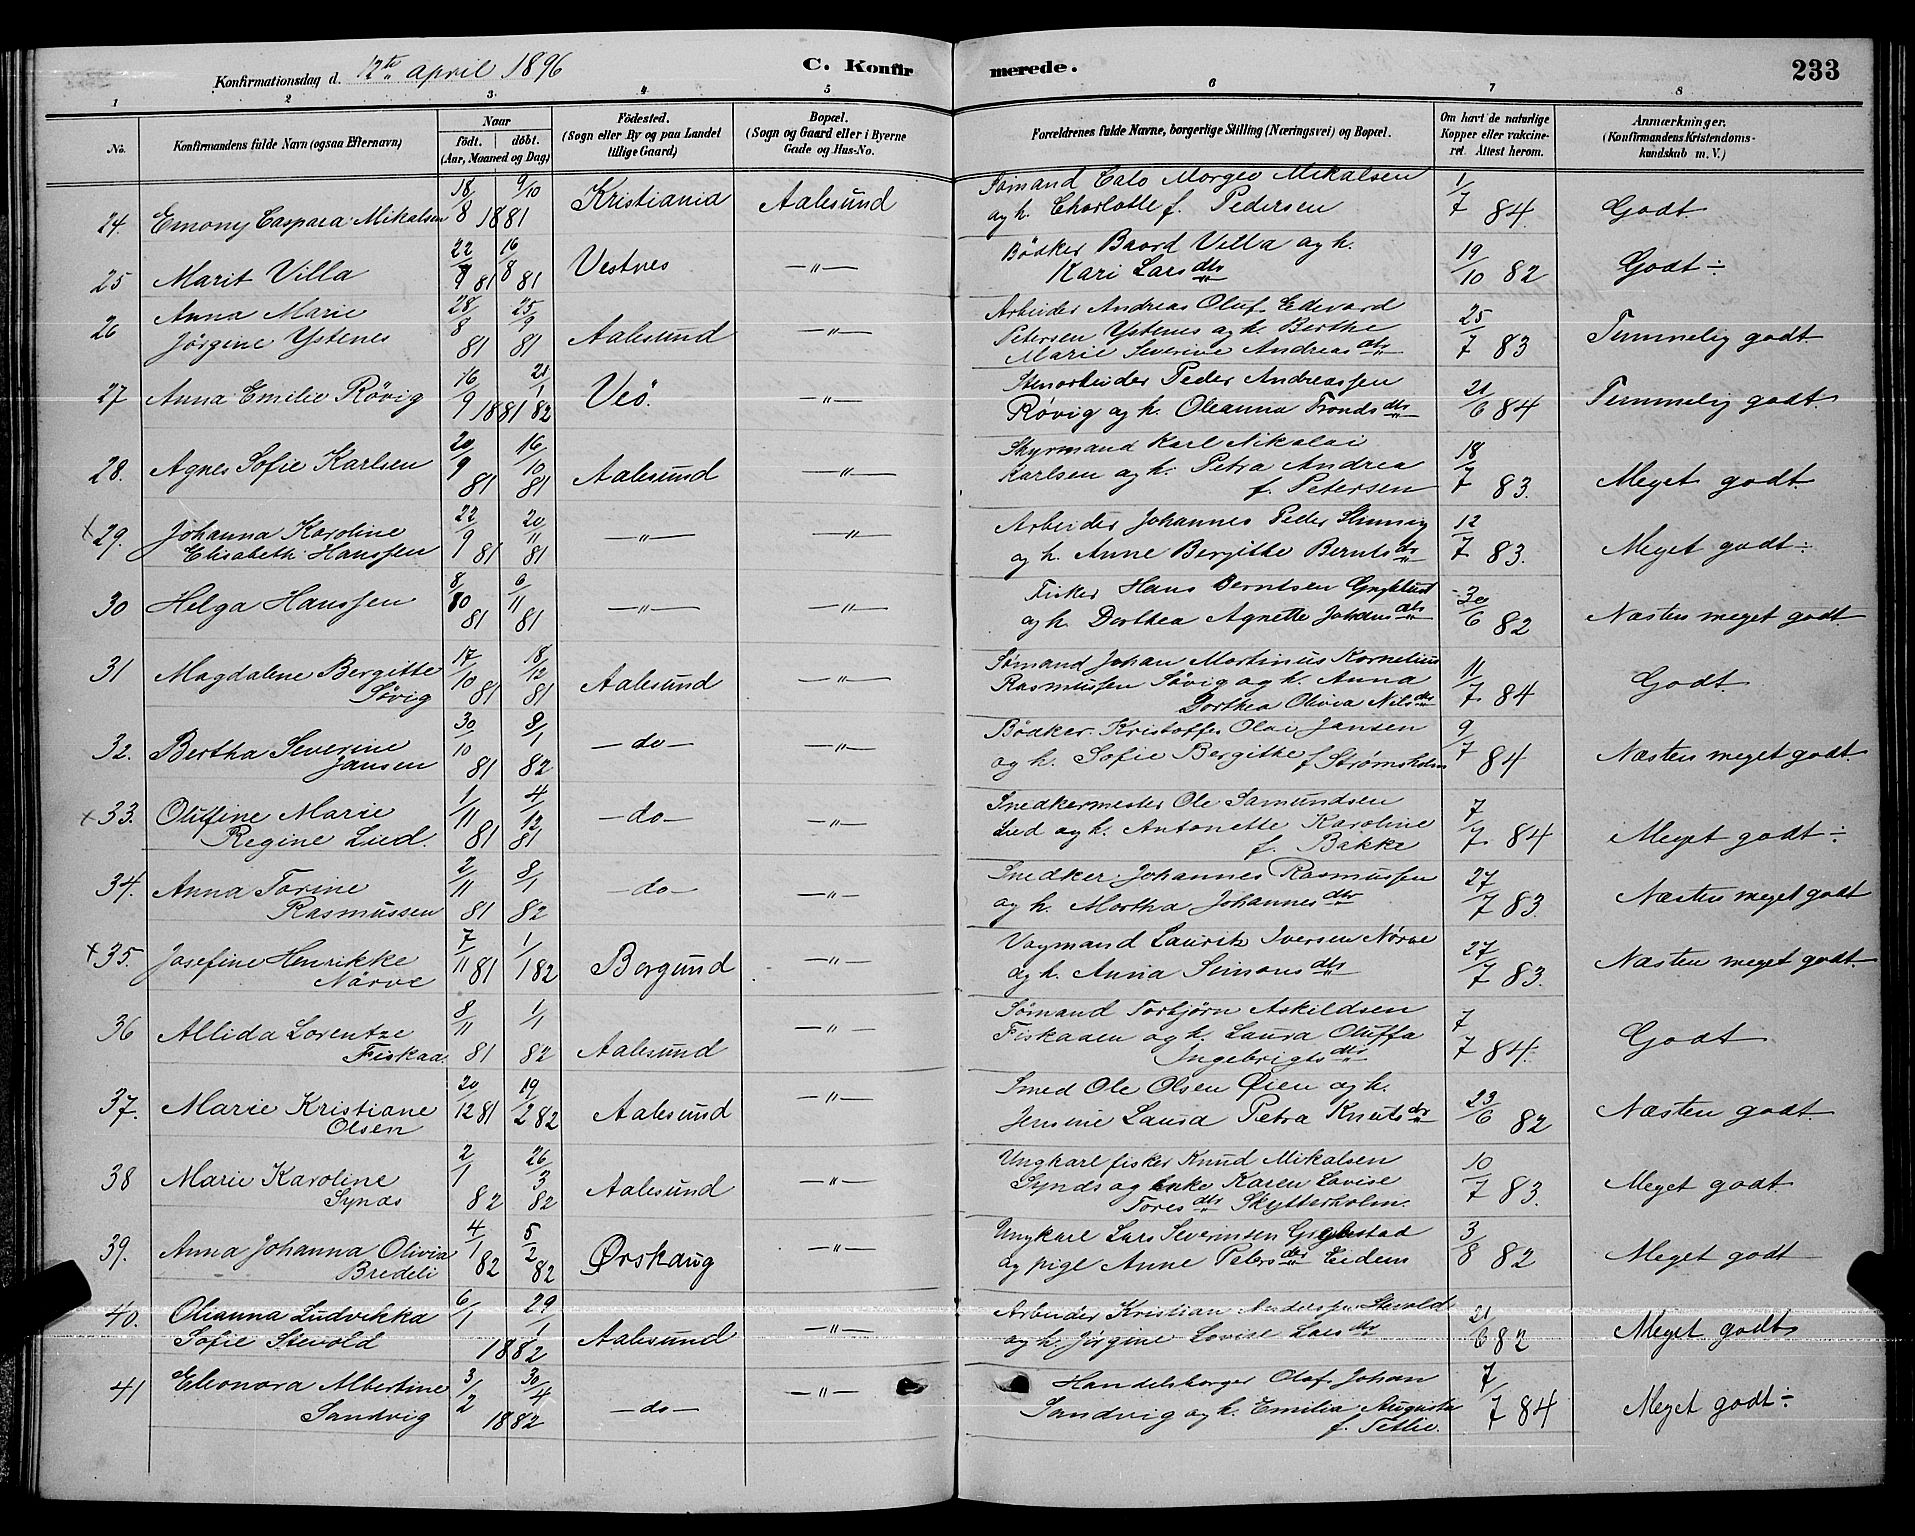 Konfirmationsdag d. 12te april 1896
C. Konfirmerede.
233
1 2 3 4 5 6 7 8
No.
Konfirmandens fulde Navn (ogsaa Efternavn)
Naar
født. døbt.
(Aar, Maaned og Dag)
Fødested.
(Sogn eller By og paa Landet
tillige Gaard)
Bopæl.
(Sogn og Gaard eller i Byerne
Gade og Hus-No.
Forældrenes fulde Navne, borgerlige Stilling (Næringsvei) og Bopæl.
Om havt de naturlige
Kopper eller vakcine-
ret. Attest herom.
Anmærkninger.
(Konfirmandens Kristendoms-
kundskab m. V.)
24. Emony Caspara Mikalsen 18/8 9/10 1881 Kristiania Aalesund
Sømand Calo Morgev Mikalsen
og h. Charlotte f. Pedersen 1/7 84. Godt
25 Marit Villa 22/7 81 16/8 81 Vestnes —"—
Bødker Baard Villa og h.
Kari Larsdtr 19/10 82 Godt ÷
26 Anna Marie
Jørgine Ystenes 28/8 81 25/9 81 Aalesund —"—
Arbeider Andreas Oluf Edevard
Petersen Ystenes og h. Berthe
Marie Severine Andreasdtr 25/7 83 Temmelig godt.
27 Anna Emilie Røvig 16/9 1881 21/1 82 Veø. —"—
Stenarbeider Peder Andreassen
Røvig og h. Oleanna Trondsdtr 21/6 84 Temmelig godt.
28. Agnes Sofie Karlsen 20/9 81 16/10 81 Aalesund —"—
Styrmand Karl Nikolai
Karlsen og h. Petra Andrea
f. Petersen 18/7 83. Meget godt.
+29. Johanna Karoline
Elisabeth Hanssen 22/9 81 20/11 81 —"— —"—
Arbeider Johannes Peder
og h. Anne Bergitte Berntsdtr 12/7 83. Meget godt ÷
30 Helga Hanssen 8/10 81 6/11 81 —"— —"—
Fisker Hans Berntsen
og h. Dorthea Agnette Johansdtr 30/6 82 Næsten meget godt
31 Magdalene Bergitte
Søvig 17/10 81 18/12 81 Aalesund —"—
Sømand Johan Martinus Kornelius
Rasmussen Søvig og h. Anna
Dorthea Olivia Nilsdtr 11/7 84 Godt.
32. Bertha Severine
Jansen 30/10 81 8/1 82 —do— —"—
Bødker Kristoffer Olai Jansen
og h. Sofie Bergitte f. Strømsholm 9/7 84 Næsten meget godt.
+33. Olufine Marie
Regine Lied. 1/11 81 4/12 81 —do— —"—
Snedkermester Ole Samundsen
Lied og h. Antonette Karoline
f. Bakke 7/7 84 Meget godt ÷
34. Anna Torine
Rasmussen 2/11 81 8/1 82 —do— —"—
Snedker Johannes Rasmussen
og h. Martha Johannesdtr 27/7 83. Næsten meget godt
+35. Josefine Henrikke
Nørve 7/11 81 1/1 82 Borgund —"—
Vogmand Laurits Iversen Nørve
og h. Anna Simonsdtr 27/7 83. Næsten meget godt.
36 Allida Lorentze
Fiskaa. 8/11 81 1/1 82 Aalesund —"—
Sømand Torbjørn Askildsen
Fiskaaen og h. Laura Oluffa
Ingebrigtsdtr 7/7 84. Godt
37. Marie Kristiane
Olsen 20/12 81 19/2 82 Aalesund —"—
Smed Ole Olsen Øien og h.
Jensine Laura Petra Knutsdtr 23/6 82 Næsten godt.
38 Marie Karoline
Synds 2/1 82 26/3 82 Aalesund —"—
Ungkarl fisker Knud Mikalsen
Synds og Enke Karen Lovise
Toresdtr Skytterholm. 10/7 83. Meget godt.
39. Anna Johanna Olivia
Bredeli 4/1 82 5/2 82 Ørskaug —"—
Ungkarl Lars Severinsen
og pige Anne Petersdtr Eidem 3/8 82 Meget godt
40. Olianna Ludvikka
Sofie Stevold 6/1 29/1 1882 Aalesund —"—
Arbeider Kristian Anderssen Stevold
og h. Jørgine Lovise Larsdtr 21/6 82 Meget godt
41 Eleonora Albertine
Sandvig 3/2 30/4 1882 —do— —"—
Handelsborger Olaf Johan
Sandvig og h. Emilia Augusta
f. Tetlie. 7/7 84 Meget godt ÷